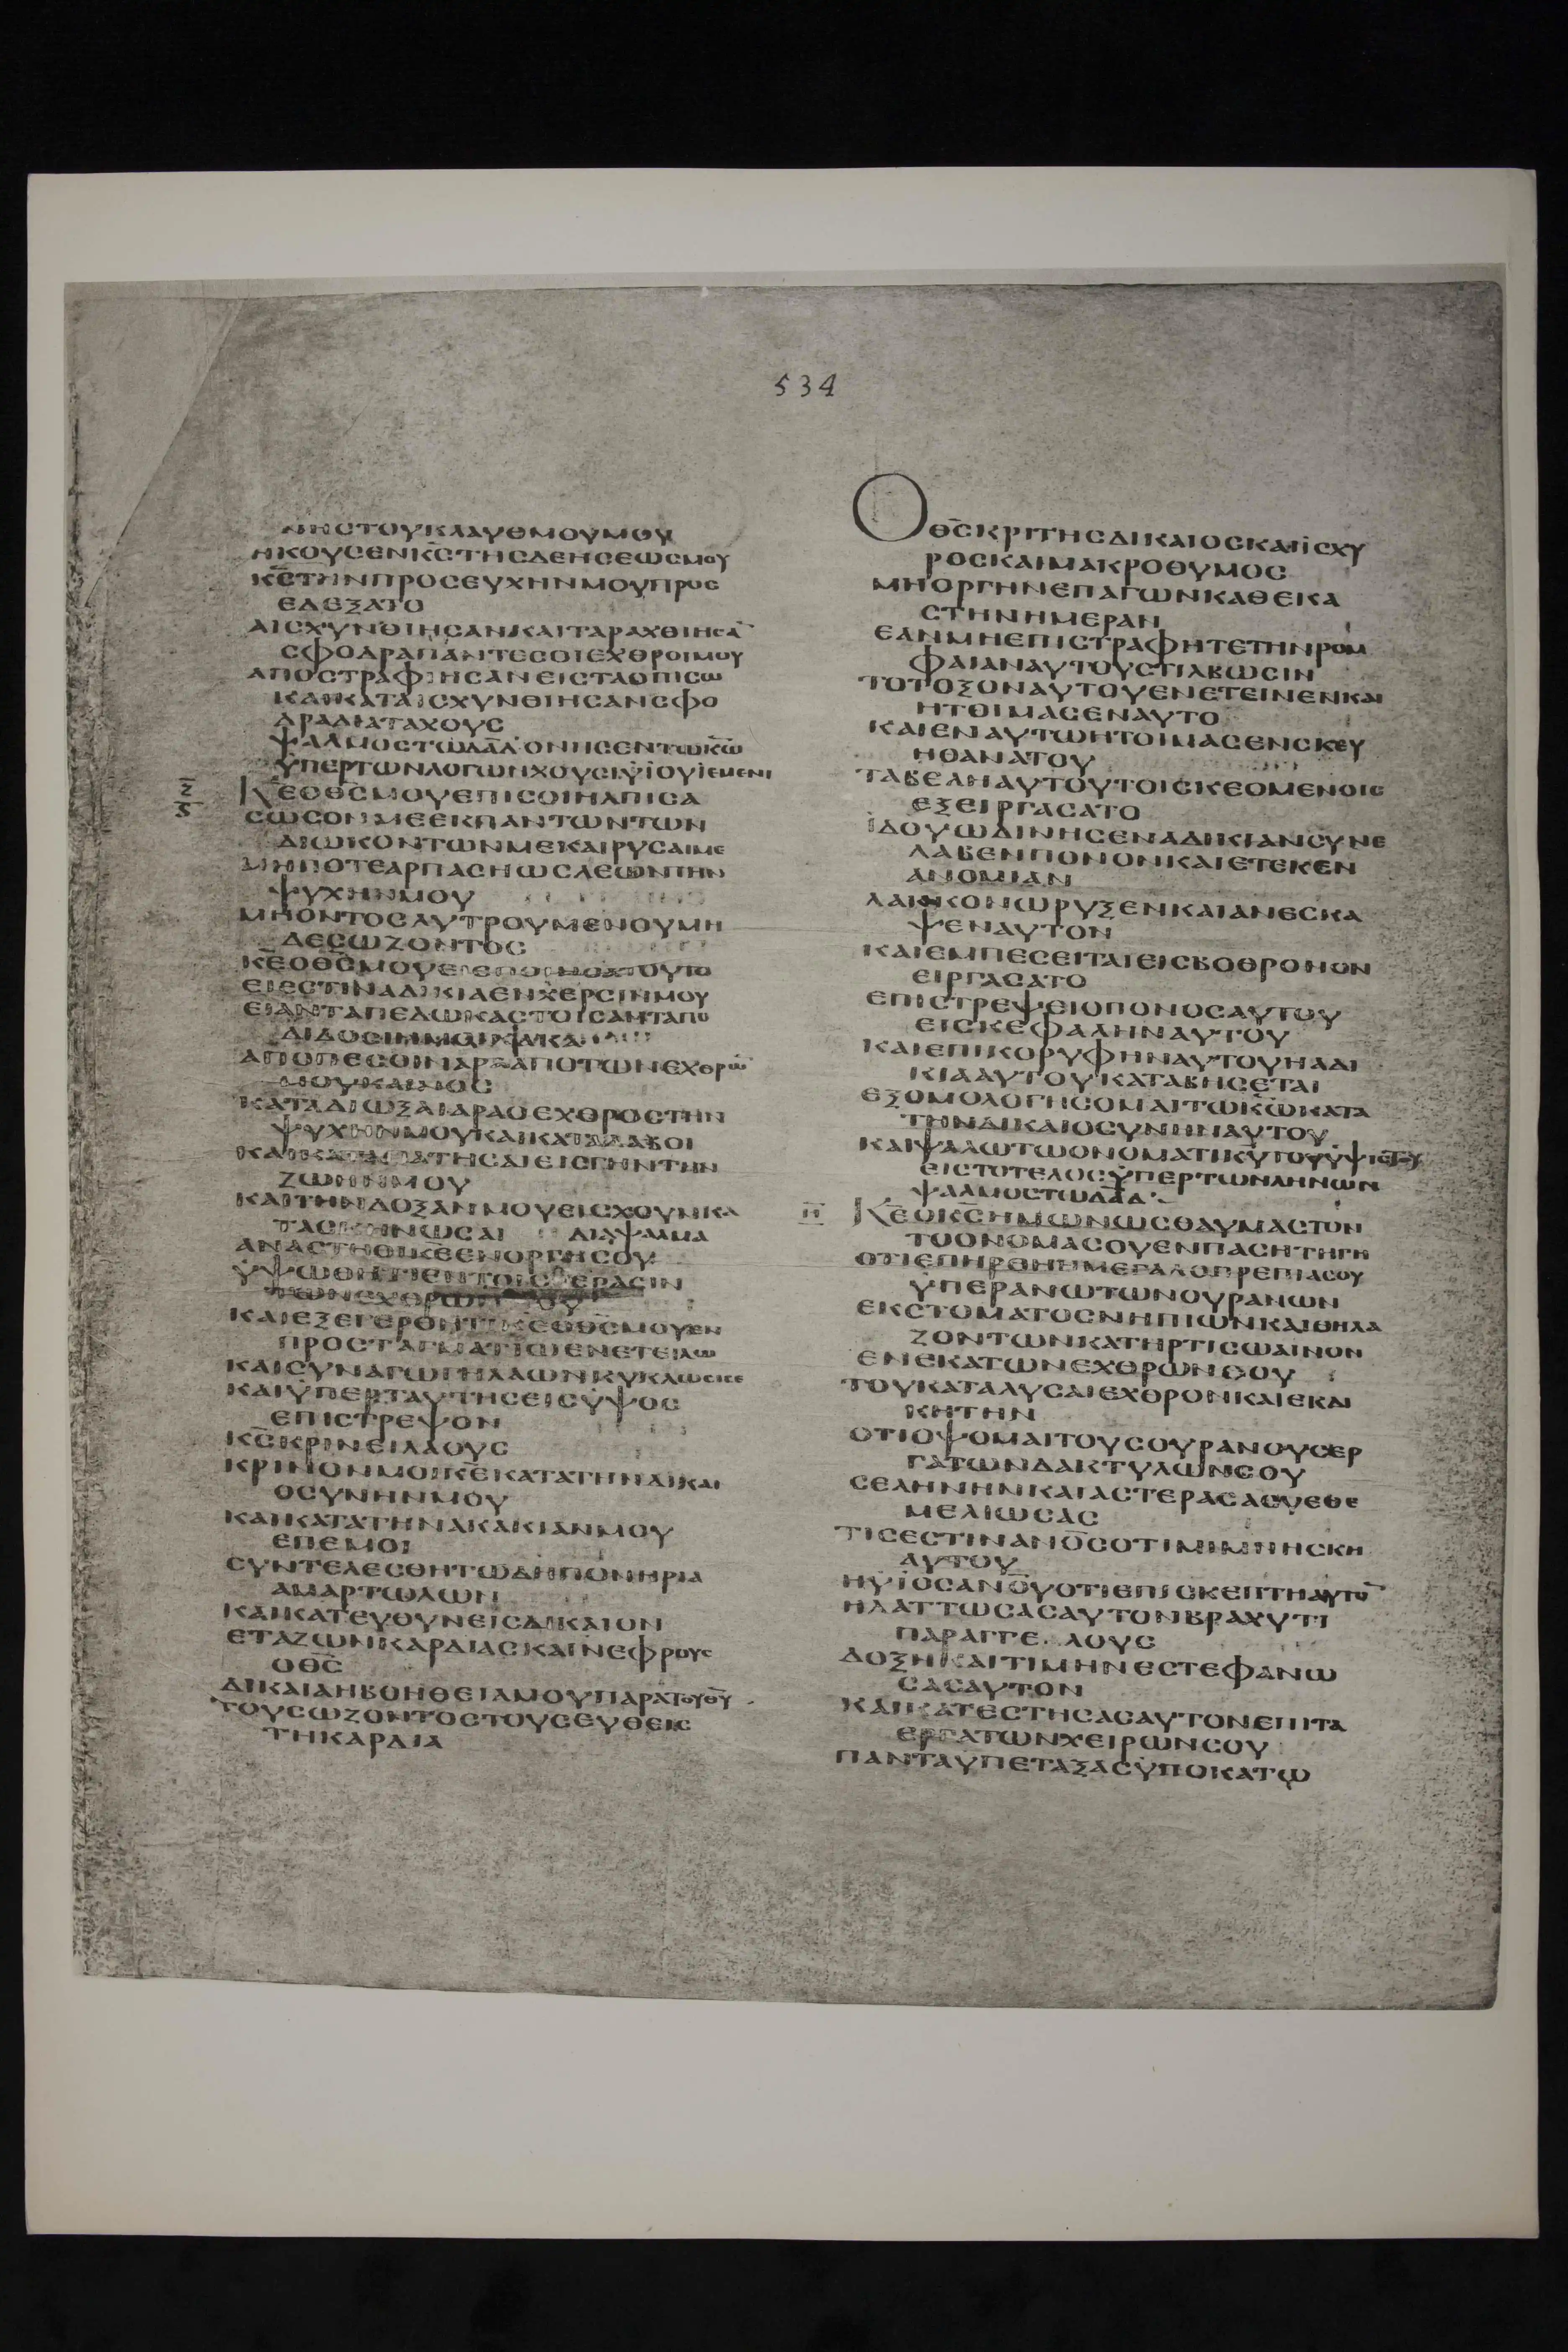 534
ΝΗСΤΟΥΚΛΑΥΘΜΟΥΜΟΥ
ΗΚΟΥСΕΝΚ̅С̅ΤΗСΔΕΗСΕΩСΜΟΥ
Κ̅С̅ΤΗΝΠΡΟСΕΥΧΗΝΜΟΥΠΡΟС
ΕΔΕΞΑΤΟ
ΑΙСΧΥΝΘΙΗСΑΝΚΑΙΤΑΡΑΧΘΙΗСΑ̅
СΦΟΔΡΑΠΑΝΤΕСΟΙΕΧΘΡΟΙΜΟΥ
ΑΠΟСΤΡΑΦΙΗСΑΝΕΙСΤΑΟΠΙСΩ
ΚΑΙΚΑΤΑΙСΧΥΝΘΙΗСΑΝСΦΟ
ΔΡΑΔΙΑΤΑΧΟΥС
ΨΑΛΜΟСΤΩΔΑ̅Δ̅ΟΝΗСΕΝΤΩΚ̅Ω̅
ΥΠΕΡΤΩΝΛΟΓΩΝΧΟΥСΙΫΙΟΥΙΕΜΕΝΙ
Ζ
Κ̅Ε̅ΟΘ̅С̅ΜΟΥΕΠΙСΟΙΗΛΠΙСΑ
СΩСΟΝΜΕΕΚΠΑΝΤΩΝΤΩΝ
ΔΙΩΚΟΝΤΩΝΜΕΚΑΙΡΥСΑΙΜΕ
ΜΗΠΟΤΕΑΡΠΑСΗΩСΛΕΩΝΤΗΝ
ΨΥΧΗΝΜΟΥ
ΜΗΟΝΤΟСΛΥΤΡΟΥΜΕΝΟΥΜΗ
ΔΕСΩΖΟΝΤΟС
Κ̅Ε̅ΟΘ̅С̅ΜΟΥΕΙΕΠΟΙΗСΑΤΟΥΤΟ
ΕΙΕСΤΙΝΑΔΙΚΙΑΕΝΧΕΡСΙΝΜΟΥ
ΕΙΑΝΤΑΠΕΔΩΚΑСΤΟΙСΑΝΤΑΠΟ
ΔΙΔΟСΙΝΜΟΙΚΑΚΑ
ΑΠΟΠΕСΟΙΝΑΡΑΑΠΟΤΩΝΕΧΘΡΩ̅
ΜΟΥΚΑΙΝΟС
ΚΑΤΑΔΙΩΞΑΙΑΡΑΟΕΧΘΡΟСΤΗΝ
ΨΥΧΗΝΜΟΥΚΑΙΚΑΤΑΛΑΒΟΙ
ΚΑΙΚΑΤΑΠΑΤΗСΑΙΕΙСΓΗΝΤΗΝ
ΖΩΗΝΜΟΥ
ΚΑΙΤΗΝΔΟΞΑΝΜΟΥΕΙСΧΟΥΝΚΑ
ΤΑСΚΗΝΩСΑΙ ΔΙΑΨΑΛΜΑ
ΑΝΑСΤΗΘΙΚ̅Ε̅ΕΝΟΡΓΗСΟΥ
ΫΨΩΘΗΤΙΕΝΤΟΙСΠΕΡΑСΙΝ
ΤΩΝΕΧΘΡΩΝ
ΚΑΙΕΞΕΓΕΡΘΗΤΙΚ̅Ε̅ΟΘ̅С̅ΜΟΥΕΝ
ΠΡΟСΤΑΓΜΑΤΙΩΕΝΕΤΕΙΛΩ
ΚΑΙСΥΝΑΓΩΓΗΛΑΩΝΚΥΚΛΩСΕΙСΕ
ΚΑΙΫΠΕΡΤΑΥΤΗСΕΙСΫΨΟС
ΕΠΙСΤΡΕΨΟΝ
Κ̅С̅ΚΡΙΝΕΙΛΑΟΥС
ΚΡΙΝΟΝΜΟΙΚ̅Ε̅ΚΑΤΑΤΗΝΔΙΚΑΙ
ΟСΥΝΗΝΜΟΥ
ΚΑΙΚΑΤΑΤΗΝΑΚΑΚΙΑΝΜΟΥ
ΕΠΕΜΟΙ
СΥΝΤΕΛΕСΘΗΤΩΔΗΠΟΝΗΡΙΑ
ΑΜΑΡΤΩΛΩΝ
ΚΑΙΚΑΤΕΥΘΥΝΕΙСΔΙΚΑΙΟΝ
ΕΤΑΖΩΝΚΑΡΔΙΑСΚΑΙΝΕΦΡΟΥС
ΟΘ̅С̅
ΔΙΚΑΙΑΗΒΟΗΘΕΙΑΜΟΥΠΑΡΑΤΟΥΘ̅Υ̅
ΤΟΥСΩΖΟΝΤΟСΤΟΥСΕΥΘΕΙС
ΤΗΚΑΡΔΙΑ
ΟΘ̅С̅ΚΡΙΤΗСΔΙΚΑΙΟСΚΑΙΪСΧΥ
ΡΟСΚΑΙΜΑΚΡΟΘΥΜΟС
ΜΗΟΡΓΗΝΕΠΑΓΩΝΚΑΘΕΚΑ
СΤΗΝΗΜΕΡΑΝ
ΕΑΝΜΗΕΠΙСΤΡΑΦΗΤΕΤΗΝΡΟΜ
ΦΑΙΑΝΑΥΤΟΥСΤΙΛΒΩСΙΝ
ΤΟΤΟΞΟΝΑΥΤΟΥΕΝΕΤΕΙΝΕΝΚΑΙ
ΗΤΟΙΜΑСΕΝΑΥΤΟ
ΚΑΙΕΝΑΥΤΩΗΤΟΙΜΑСΕΝСΚΕΥ
ΗΘΑΝΑΤΟΥ
ΤΑΒΕΛΗΑΥΤΟΥΤΟΙСΚΕΟΜΕΝΟΙС
ΕΞΕΙΡΓΑСΑΤΟ
ΪΔΟΥΩΔΙΝΗСΕΝΑΔΙΚΙΑΝСΥΝΕ
ΛΑΒΕΝΠΟΝΟΝΚΑΙΕΤΕΚΕΝ
ΑΝΟΜΙΑΝ
ΛΑΚΚΟΝΩΡΥΞΕΝΚΑΙΑΝΕСΚΑ
ΨΕΝΑΥΤΟΝ
ΚΑΙΕΜΠΕСΕΙΤΑΙΕΙСΒΟΘΡΟΝΟΝ
ΕΙΡΓΑСΑΤΟ
ΕΠΙСΤΡΕΨΕΙΟΠΟΝΟСΑΥΤΟΥ
ΕΙСΚΕΦΑΛΗΝΑΥΤΟΥ
ΚΑΙΕΠΙΚΟΡΥΦΗΝΑΥΤΟΥΗΑΔΙ
ΚΙΑΑΥΤΟΥΚΑΤΑΒΗСΕΤΑΙ
ΕΞΟΜΟΛΟΓΗСΟΜΑΙΤΩΚ̅Ω̅ΚΑΤΑ
ΤΗΝΔΙΚΑΙΟСΥΝΗΝΑΥΤΟΥ
ΚΑΙΨΑΛΩΤΩΟΝΟΜΑΤΙΚ̅Υ̅ΤΟΥΫΨΙСΤΟΥ
ΕΙСΤΟΤΕΛΟСΫΠΕΡΤΩΝΛΗΝΩΝ
ΨΑΛΜΟСΤΩΔΑ̅Δ̅
Η
Κ̅Ε̅ΟΚ̅С̅ΗΜΩΝΩСΘΑΥΜΑСΤΟΝ
ΤΟΟΝΟΜΑСΟΥΕΝΠΑСΗΤΗΓΗ
ΟΤΙΕΠΗΡΘΗΗΜΕΓΑΛΟΠΡΕΠΙΑСΟΥ
ΫΠΕΡΑΝΩΤΩΝΟΥΡΑΝΩΝ
ΕΚСΤΟΜΑΤΟСΝΗΠΙΩΝΚΑΙΘΗΛΑ
ΖΟΝΤΩΝΚΑΤΗΡΤΙСΩΑΙΝΟΝ
ΕΝΕΚΑΤΩΝΕΧΘΡΩΝСΟΥ
ΤΟΥΚΑΤΑΛΥСΑΙΕΧΘΡΟΝΚΑΙΕΚΔΙ
ΚΗΤΗΝ
ΟΤΙΟΨΟΜΑΙΤΟΥСΟΥΡΑΝΟΥСΕΡ
ΓΑΤΩΝΔΑΚΤΥΛΩΝСΟΥ
СΕΛΗΝΗΝΚΑΙΑСΤΕΡΑСΑСΥΕΘΕ
ΜΕΛΙΩСΑС
ΤΙСΕСΤΙΝΑΝ̅Ο̅С̅ΟΤΙΜΙΜΝΗСΚΗ
ΑΥΤΟΥ
ΗΫΙΟСΑΝ̅Ο̅Υ̅ΟΤΙΕΠΙСΚΕΠΤΗΑΥΤΟ̅
ΗΛΑΤΤΩСΑСΑΥΤΟΝΒΡΑΧΥΤΙ
ΠΑΡΑΓΓΕΛΟΥС
ΔΟΞΗΚΑΙΤΙΜΗΝΕСΤΕΦΑΝΩ
СΑСΑΥΤΟΝ
ΚΑΙΚΑΤΕСΤΗСΑСΑΥΤΟΝΕΠΙΤΑ
ΕΡΓΑΤΩΝΧΕΙΡΩΝСΟΥ
ΠΑΝΤΑΫΠΕΤΑΞΑСΫΠΟΚΑΤΩ